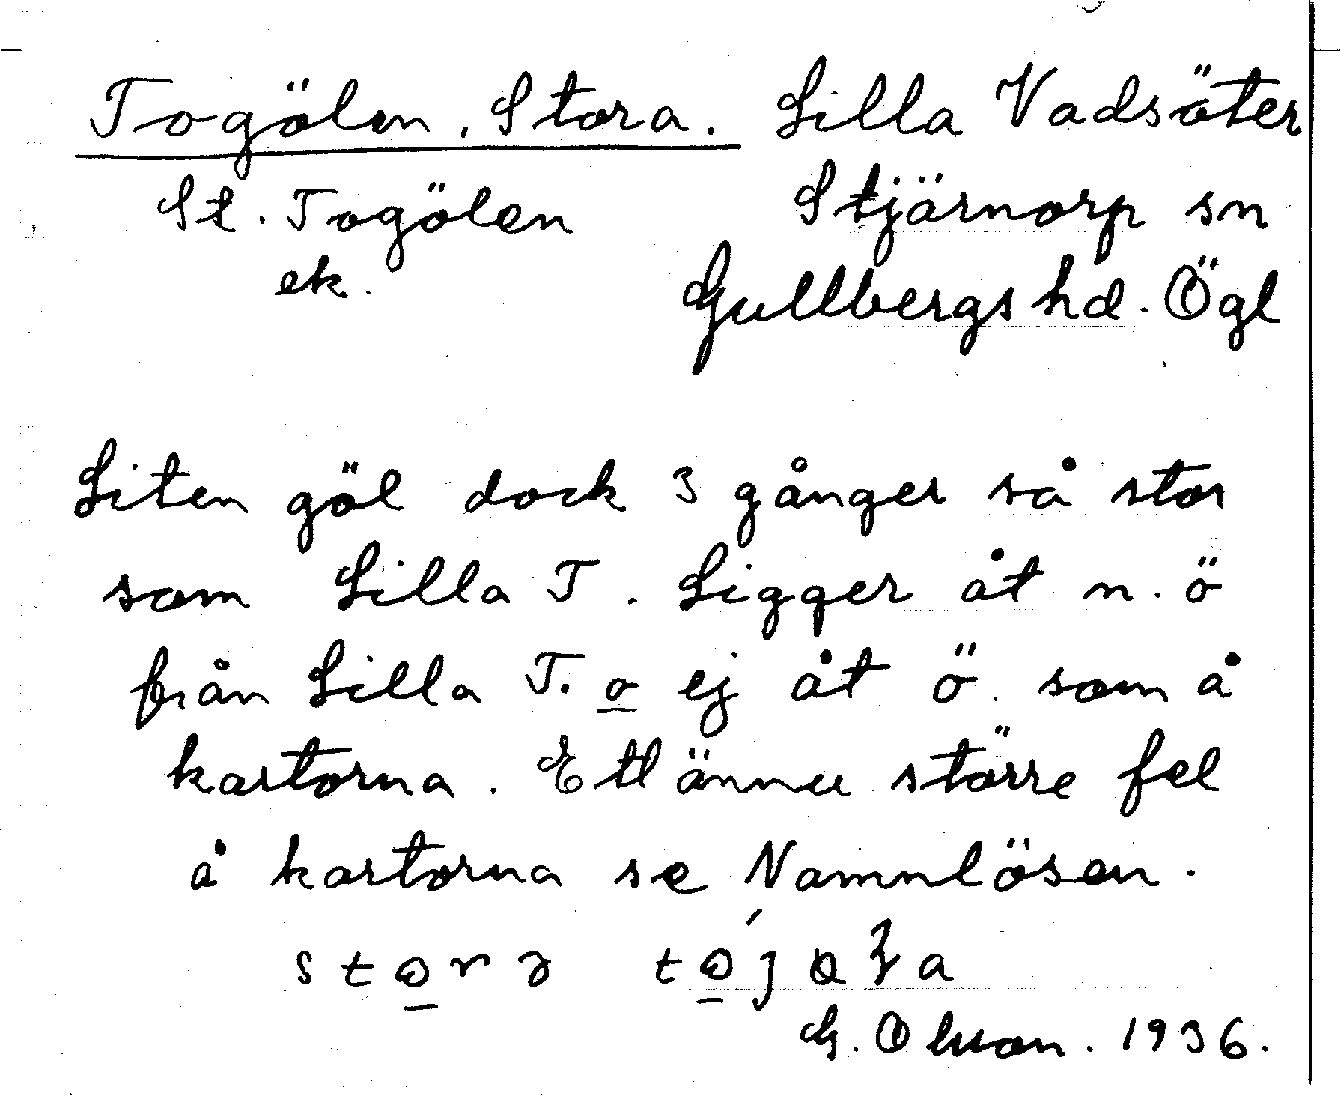 Togölen, Stora. Lilla Vadsäter
St. Togölen Stjärnorp sn
ek. Gullbergs hd. Ögl
Liten göl dock 3 gånger så stor
som Lilla T. Ligger åt n. ö
från Lilla T. o ej åt ö. som å
kartorna. Ett ännu större fel
å kartorna se Namnlösen.
G. Olson. 1936.